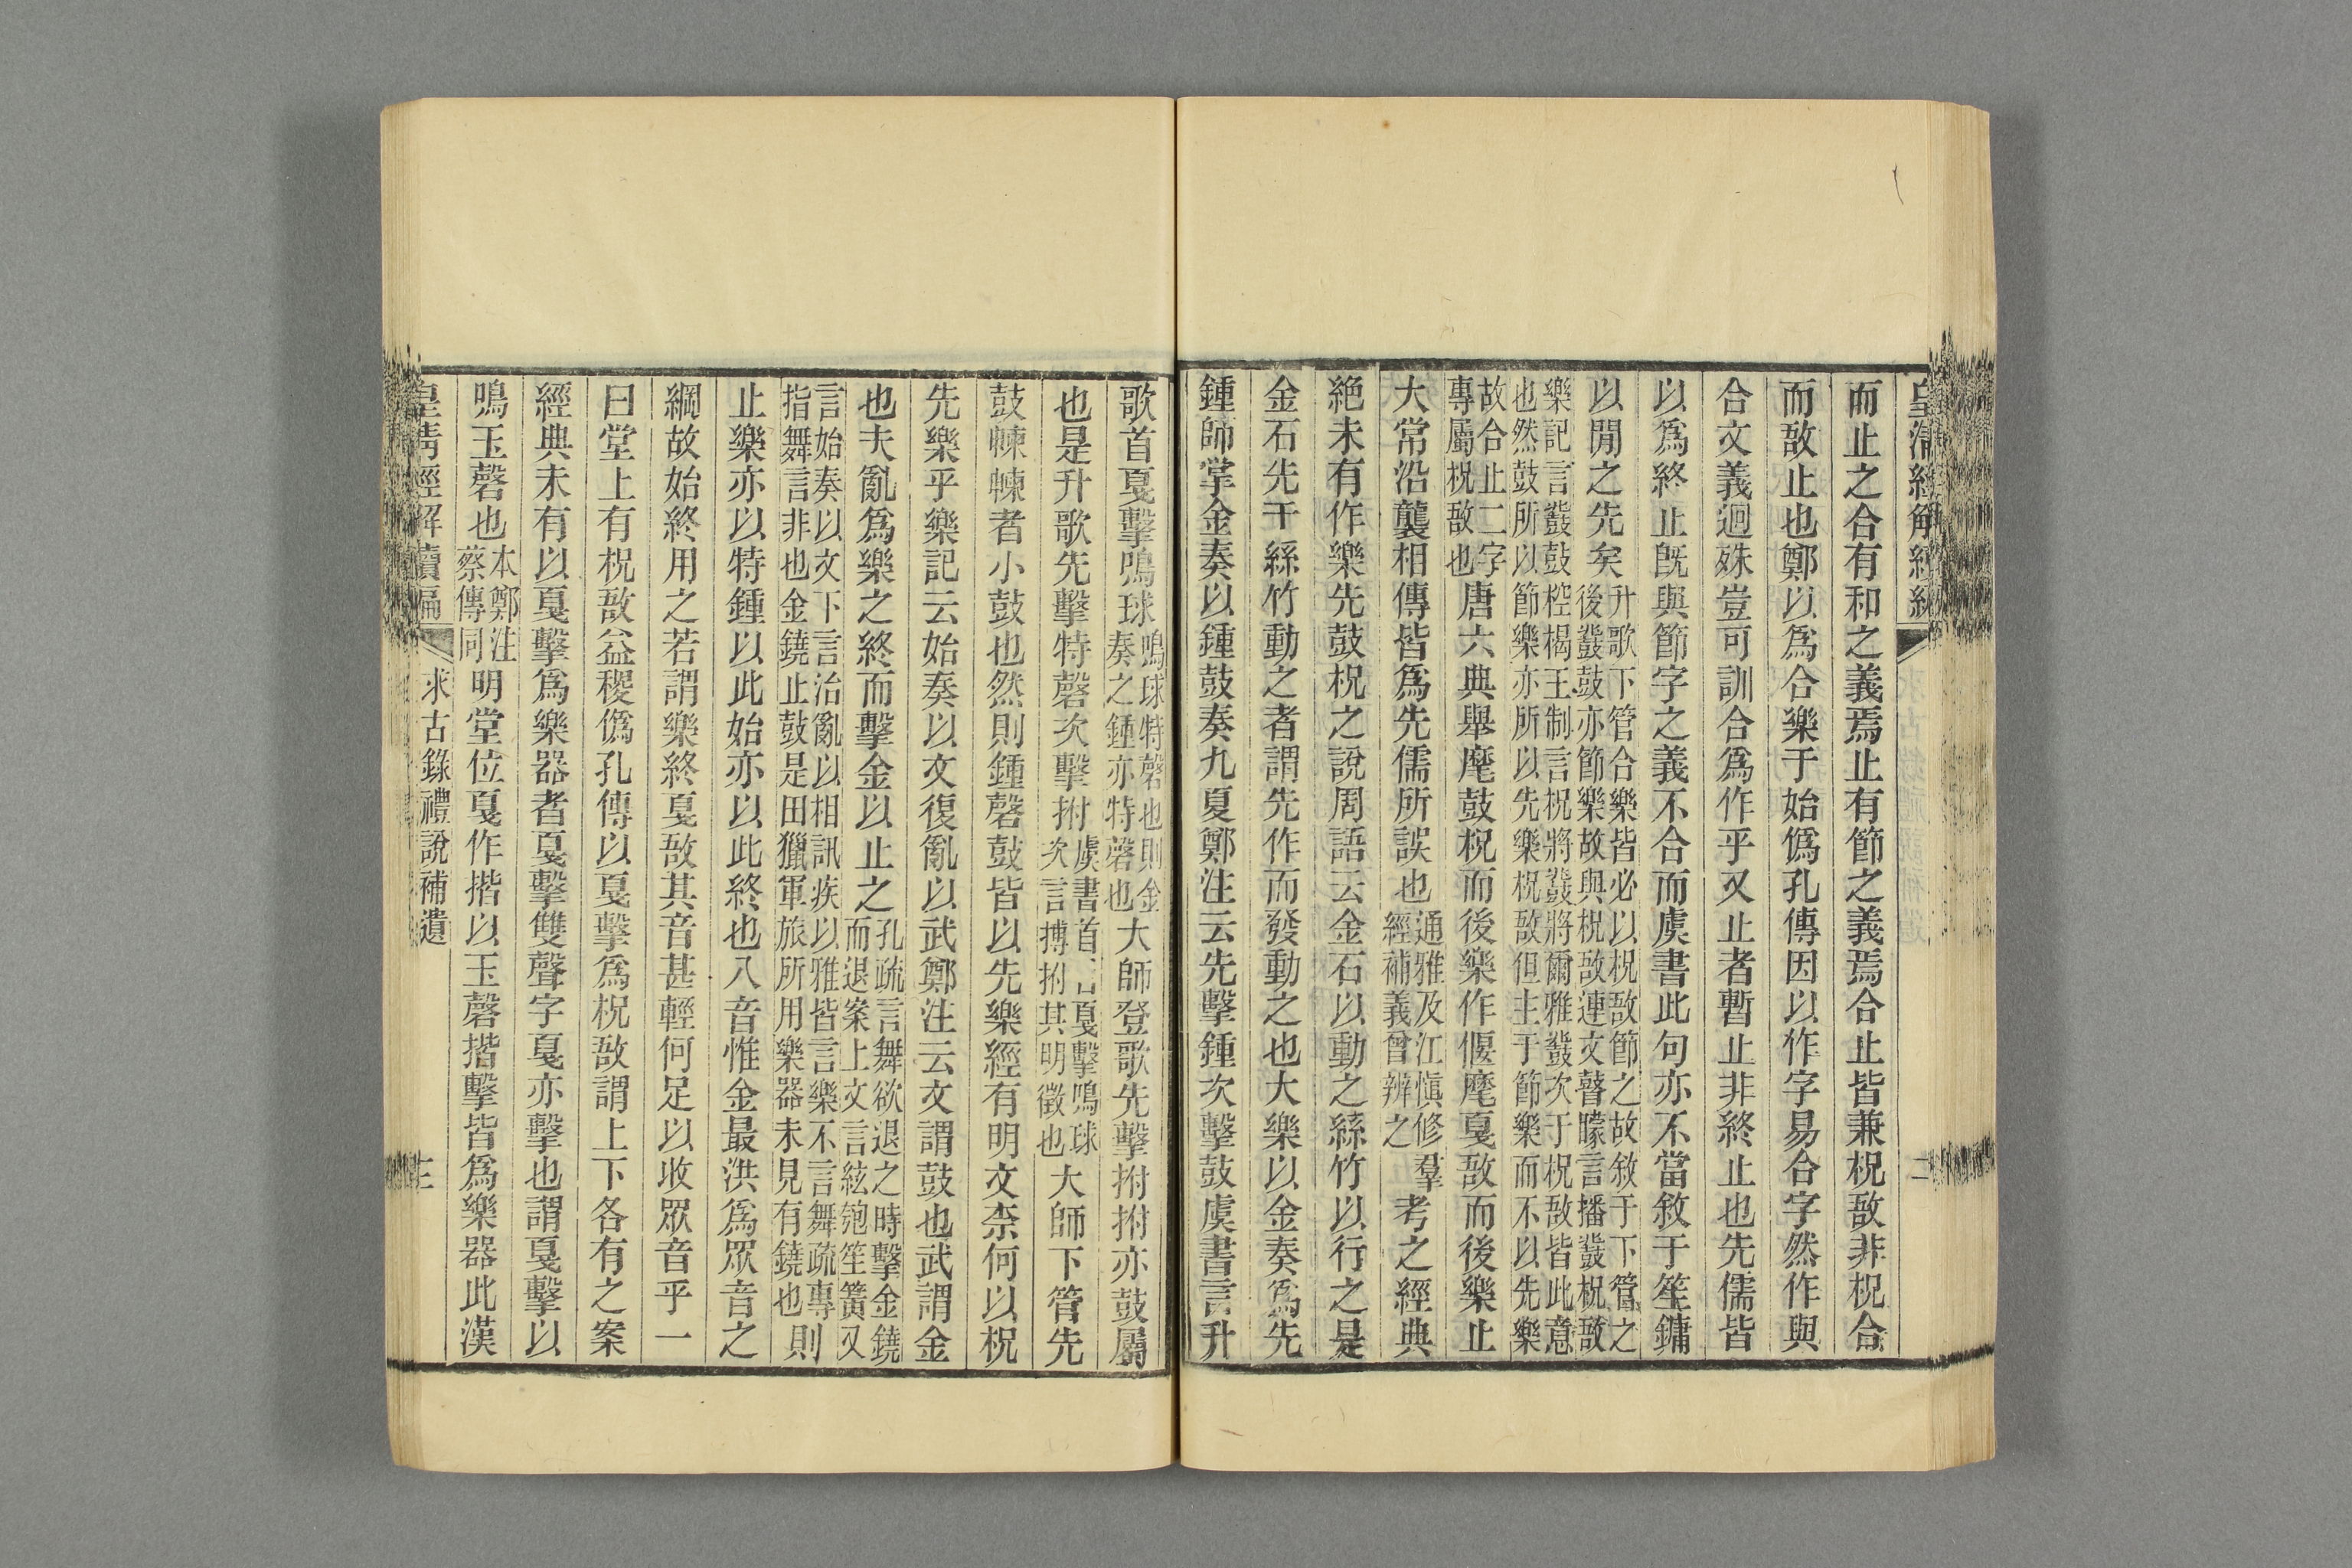 皇清經解續編
二
而止之合有和之義焉止有節之義焉合止皆兼柷敔非柷合
而敔止也鄭以爲合樂于始僞孔傳因以作字易合字然作與
合文義迥殊豈可訓合爲作乎又止者暫止非終止也先儒皆
以爲終止旣與節字之義不合而虞書此句亦不當敘于笙鏞
以閒之先矣
升歌下管合樂皆必以柷敔節之故敘于下管之
後鼗鼓亦節樂故與柷敔連文瞽矇言播鼗柷敔
樂記言鼗鼓椌楬王制言柷將鼗將爾雅鼗次于柷敔皆此意
也然鼓所以節樂亦所以先樂柷敔但主于節樂而不以先樂
故合止二字
專屬柷敔也
唐六典舉麾鼓柷而後樂作偃麾戛敔而後樂止
大常沿襲相傳皆爲先儒所誤也
通雅及江愼修羣
經補義曾辨之
考之經典
絶未有作樂先鼓柷之說周語云金石以動之絲竹以行之是
金石先于絲竹動之者謂先作而發動之也大樂以金奏爲先
鍾師掌金奏以鍾鼓奏九夏鄭注云先擊鍾次擊鼓虞書言升
歌首戛擊鳴球
鳴球特磬也則金
奏之鍾亦特磬也
大師登歌先擊拊拊亦鼓屬
也是升歌先擊特磬次擊拊
虞書首言戛擊鳴球
次言搏拊其明徵也
大師下管先
鼓朄朄者小鼓也然則鍾磬鼓皆以先樂經有明文柰何以柷
先樂乎樂記云始奏以文復亂以武鄭注云文謂鼓也武謂金
也夫亂爲樂之終而擊金以止之
孔疏言舞欲退之時擊金鐃
而退案上文言絃匏笙簧又
言始奏以文下言治亂以相訊疾以雅皆言樂不言舞疏專
指舞言非也金鐃止鼓是田獵軍旅所用樂器未見有鐃也
則
止樂亦以特鍾以此始亦以此終也八音惟金最洪爲眾音之
綱故始終用之若謂樂終戛敔其音甚輕何足以收眾音乎一
曰堂上有柷敔益稷僞孔傳以戛擊爲柷敔謂上下各有之案
經典未有以戛擊爲樂器者戛擊雙聲字戛亦擊也謂戛擊以
鳴玉磬也
本鄭注
蔡傳同
明堂位戛作揩以玉磬揩擊皆爲樂器此漢
皇淸經解續編
求古錄禮說補遺